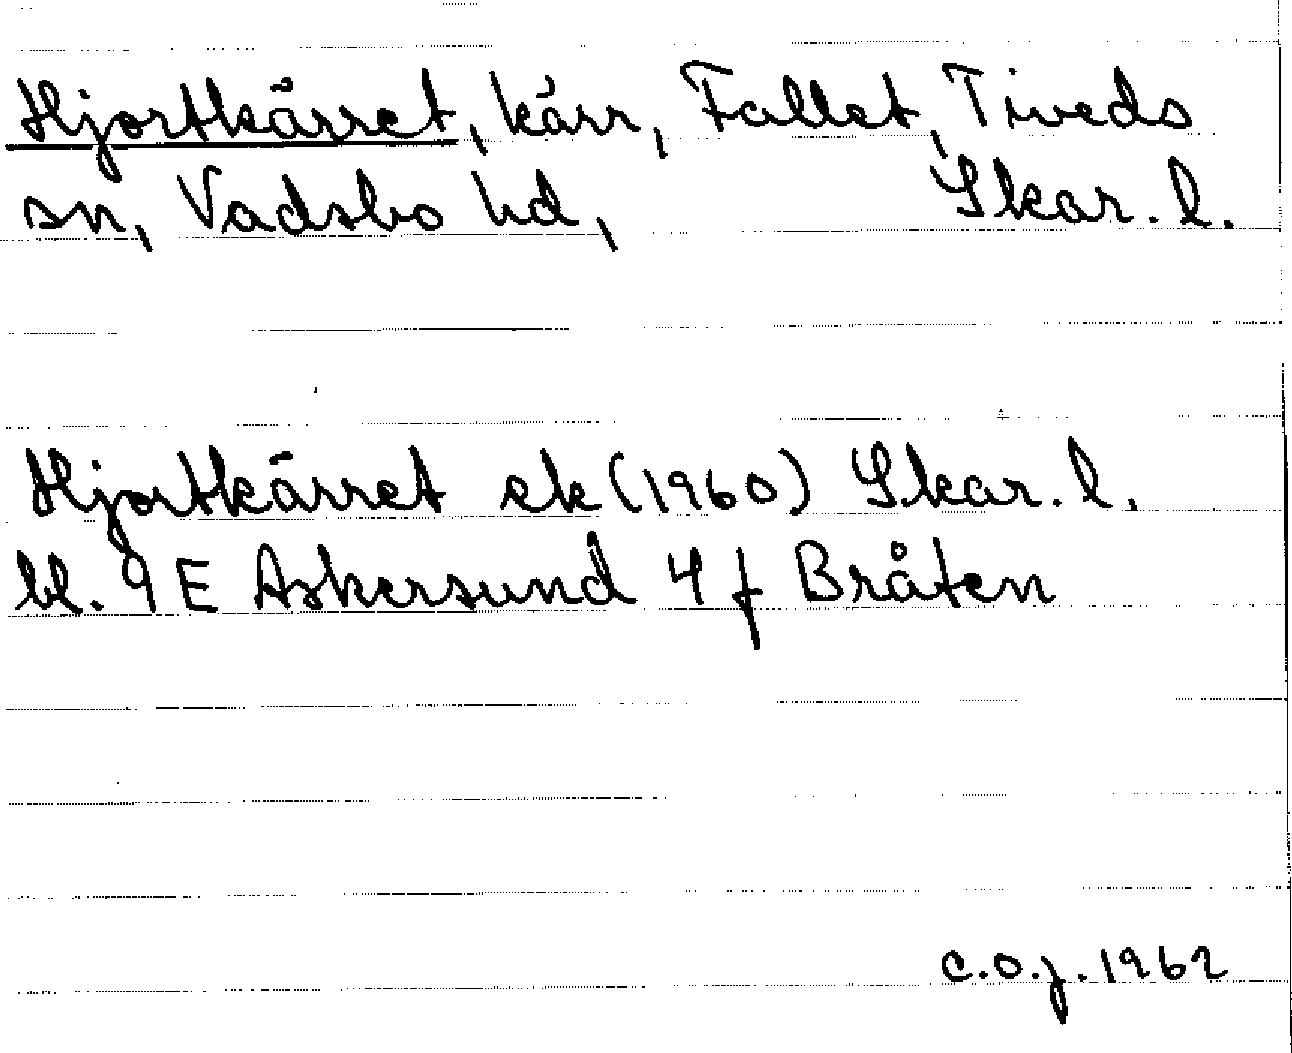 Hjortkärret, kärr, Fallet, Tiveds
sn, Vadsbo hd, Skar. l.
Hjortkärret ek (1960) Skar. l.
bl. 9 E Askersund 4 f Bråten
C.O.J. 1962